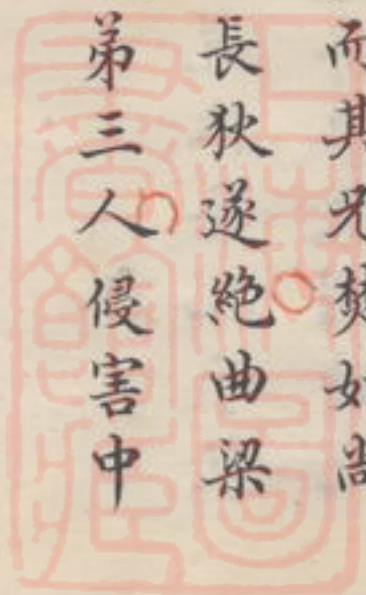 而其兄焚如尚
長狄遂絶曲梁
第三人侵害中